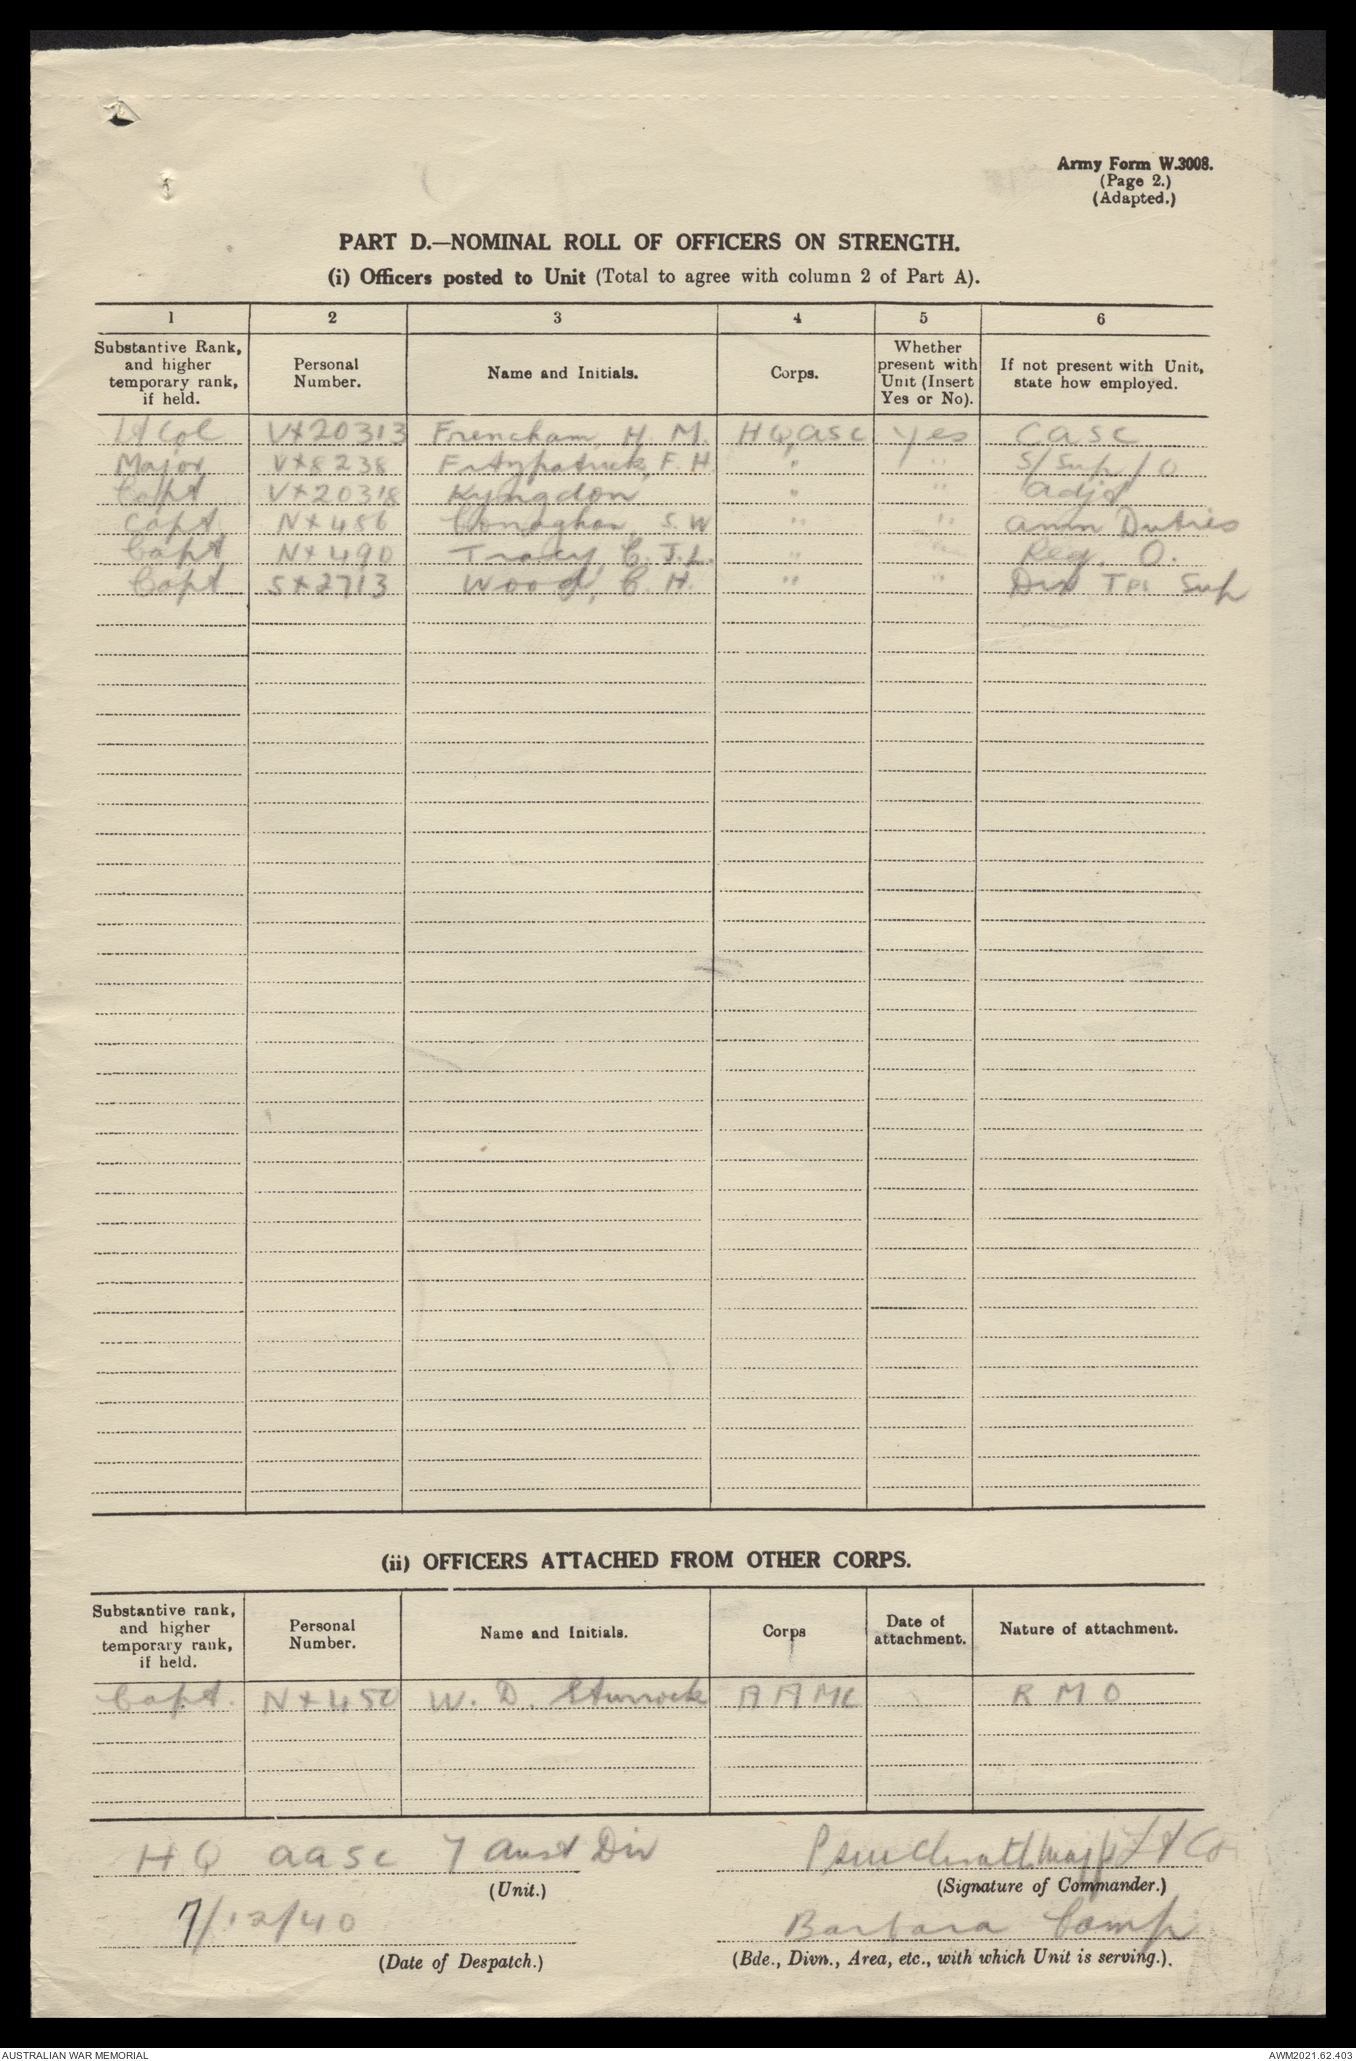 Army Form W.3008.
(Page 2.)
(Adapted.)
PART D.—NOMINAL ROLL OF OFFICERS ON STRENGTH.
(i) Officers posted to Unit (Total to agree with column 2 of Part A).
1 2 3 4 5 6
Substantive Rank, and higher temporary rank, if held. Personal Number. Name and Initials. Corps. Whether present with Unit (Insert Yes or No). If not present with Unit, state how employed.
Lt Col VX20313 Frencham, H. M. HQ AASC Yes CASC
Major VX8238 Fitzpatrick, F. H. " " S/Sup/O
Capt VX20318 Kyngdon " " Adjt
Capt NX486 Conaghan S. W " " Amn Duties
Capt NX490 Tracy, C. J.L. " " Reg. O.
Capt SX2713 Wood, C. H. " " Div Tpt Sup
(ii) OFFICERS ATTACHED FROM OTHER CORPS.
Substantive rank, and higher temporary rank, if held. Personal Number. Name and Initials. Corps Date of attachment. Nature of attachment.
Capt. NX450 W. D. Sturrock AAMC RMO
HQ AASC 7 Aust Div Lt Col
(Unit.) (Signature of Commander.)
7/12/40 Barbara Camp
(Date of Despatch.) (Bde., Divn., Area, etc., with which Unit is serving.).
AUSTRALIAN WAR MEMORIAL AWM2021.62.403